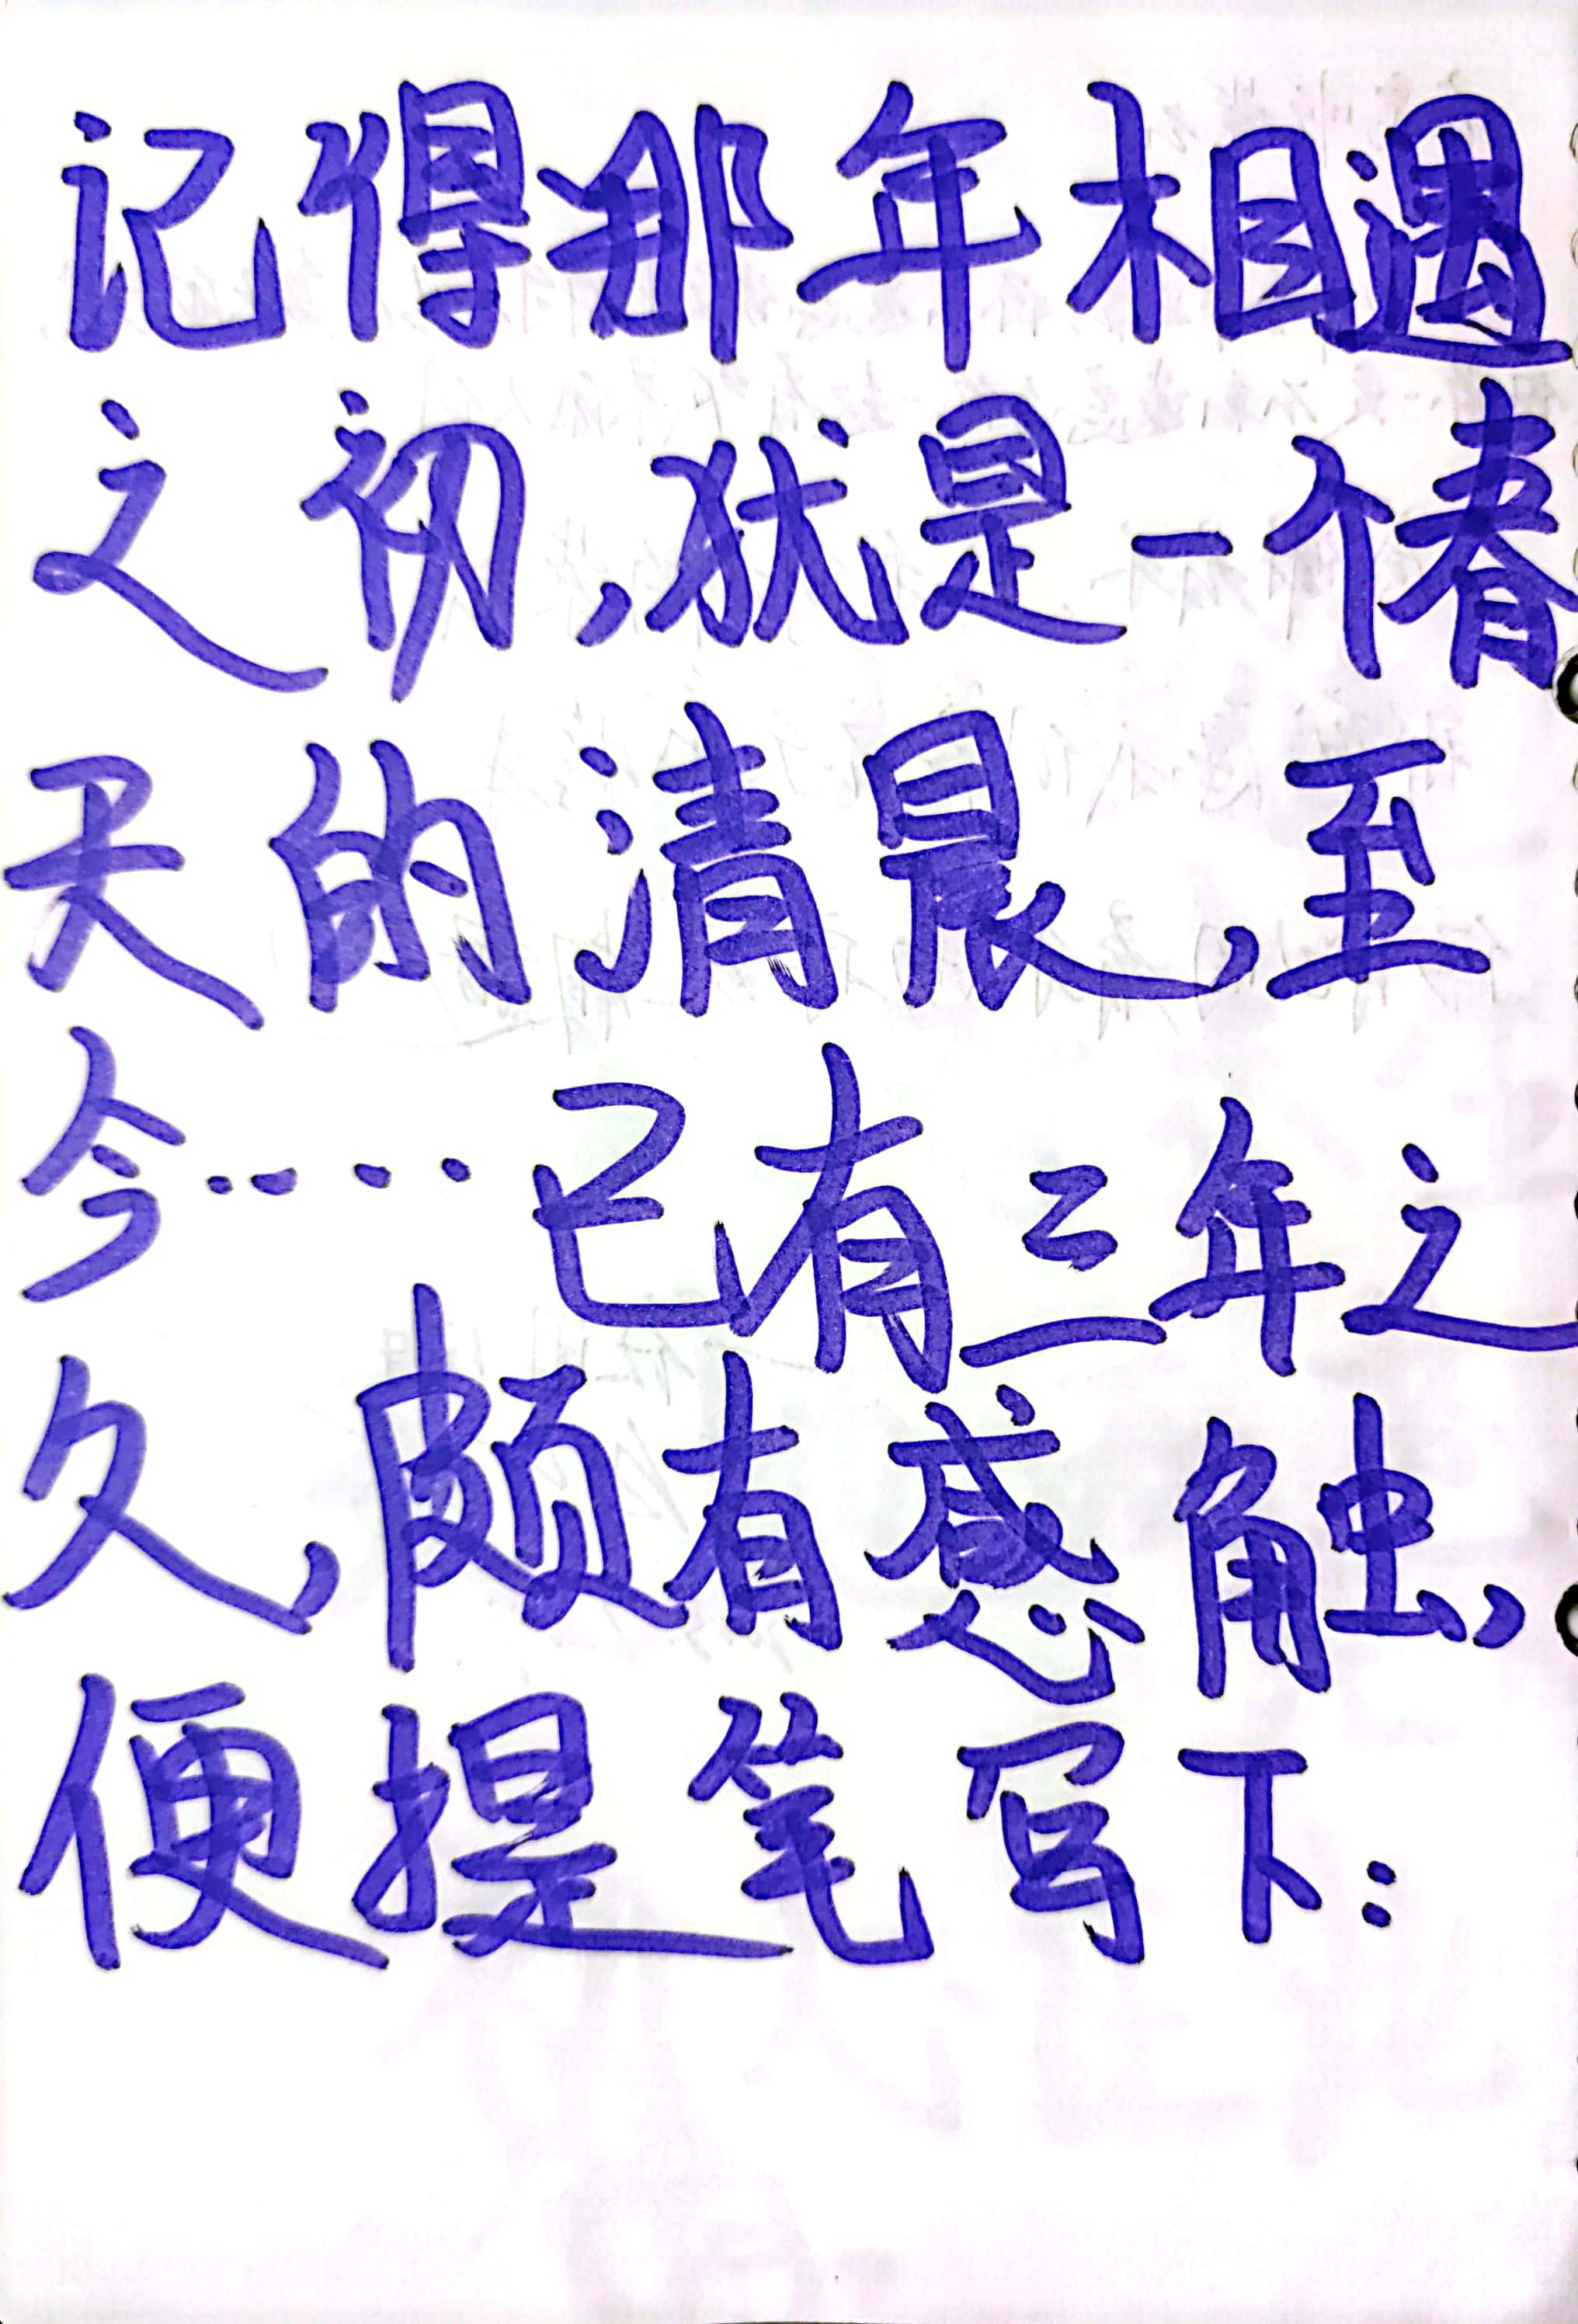 记得那年相遇
之初,犹是一个春
天的清晨,至
今····已有三年之
久,颇有感触,
便提笔写下: